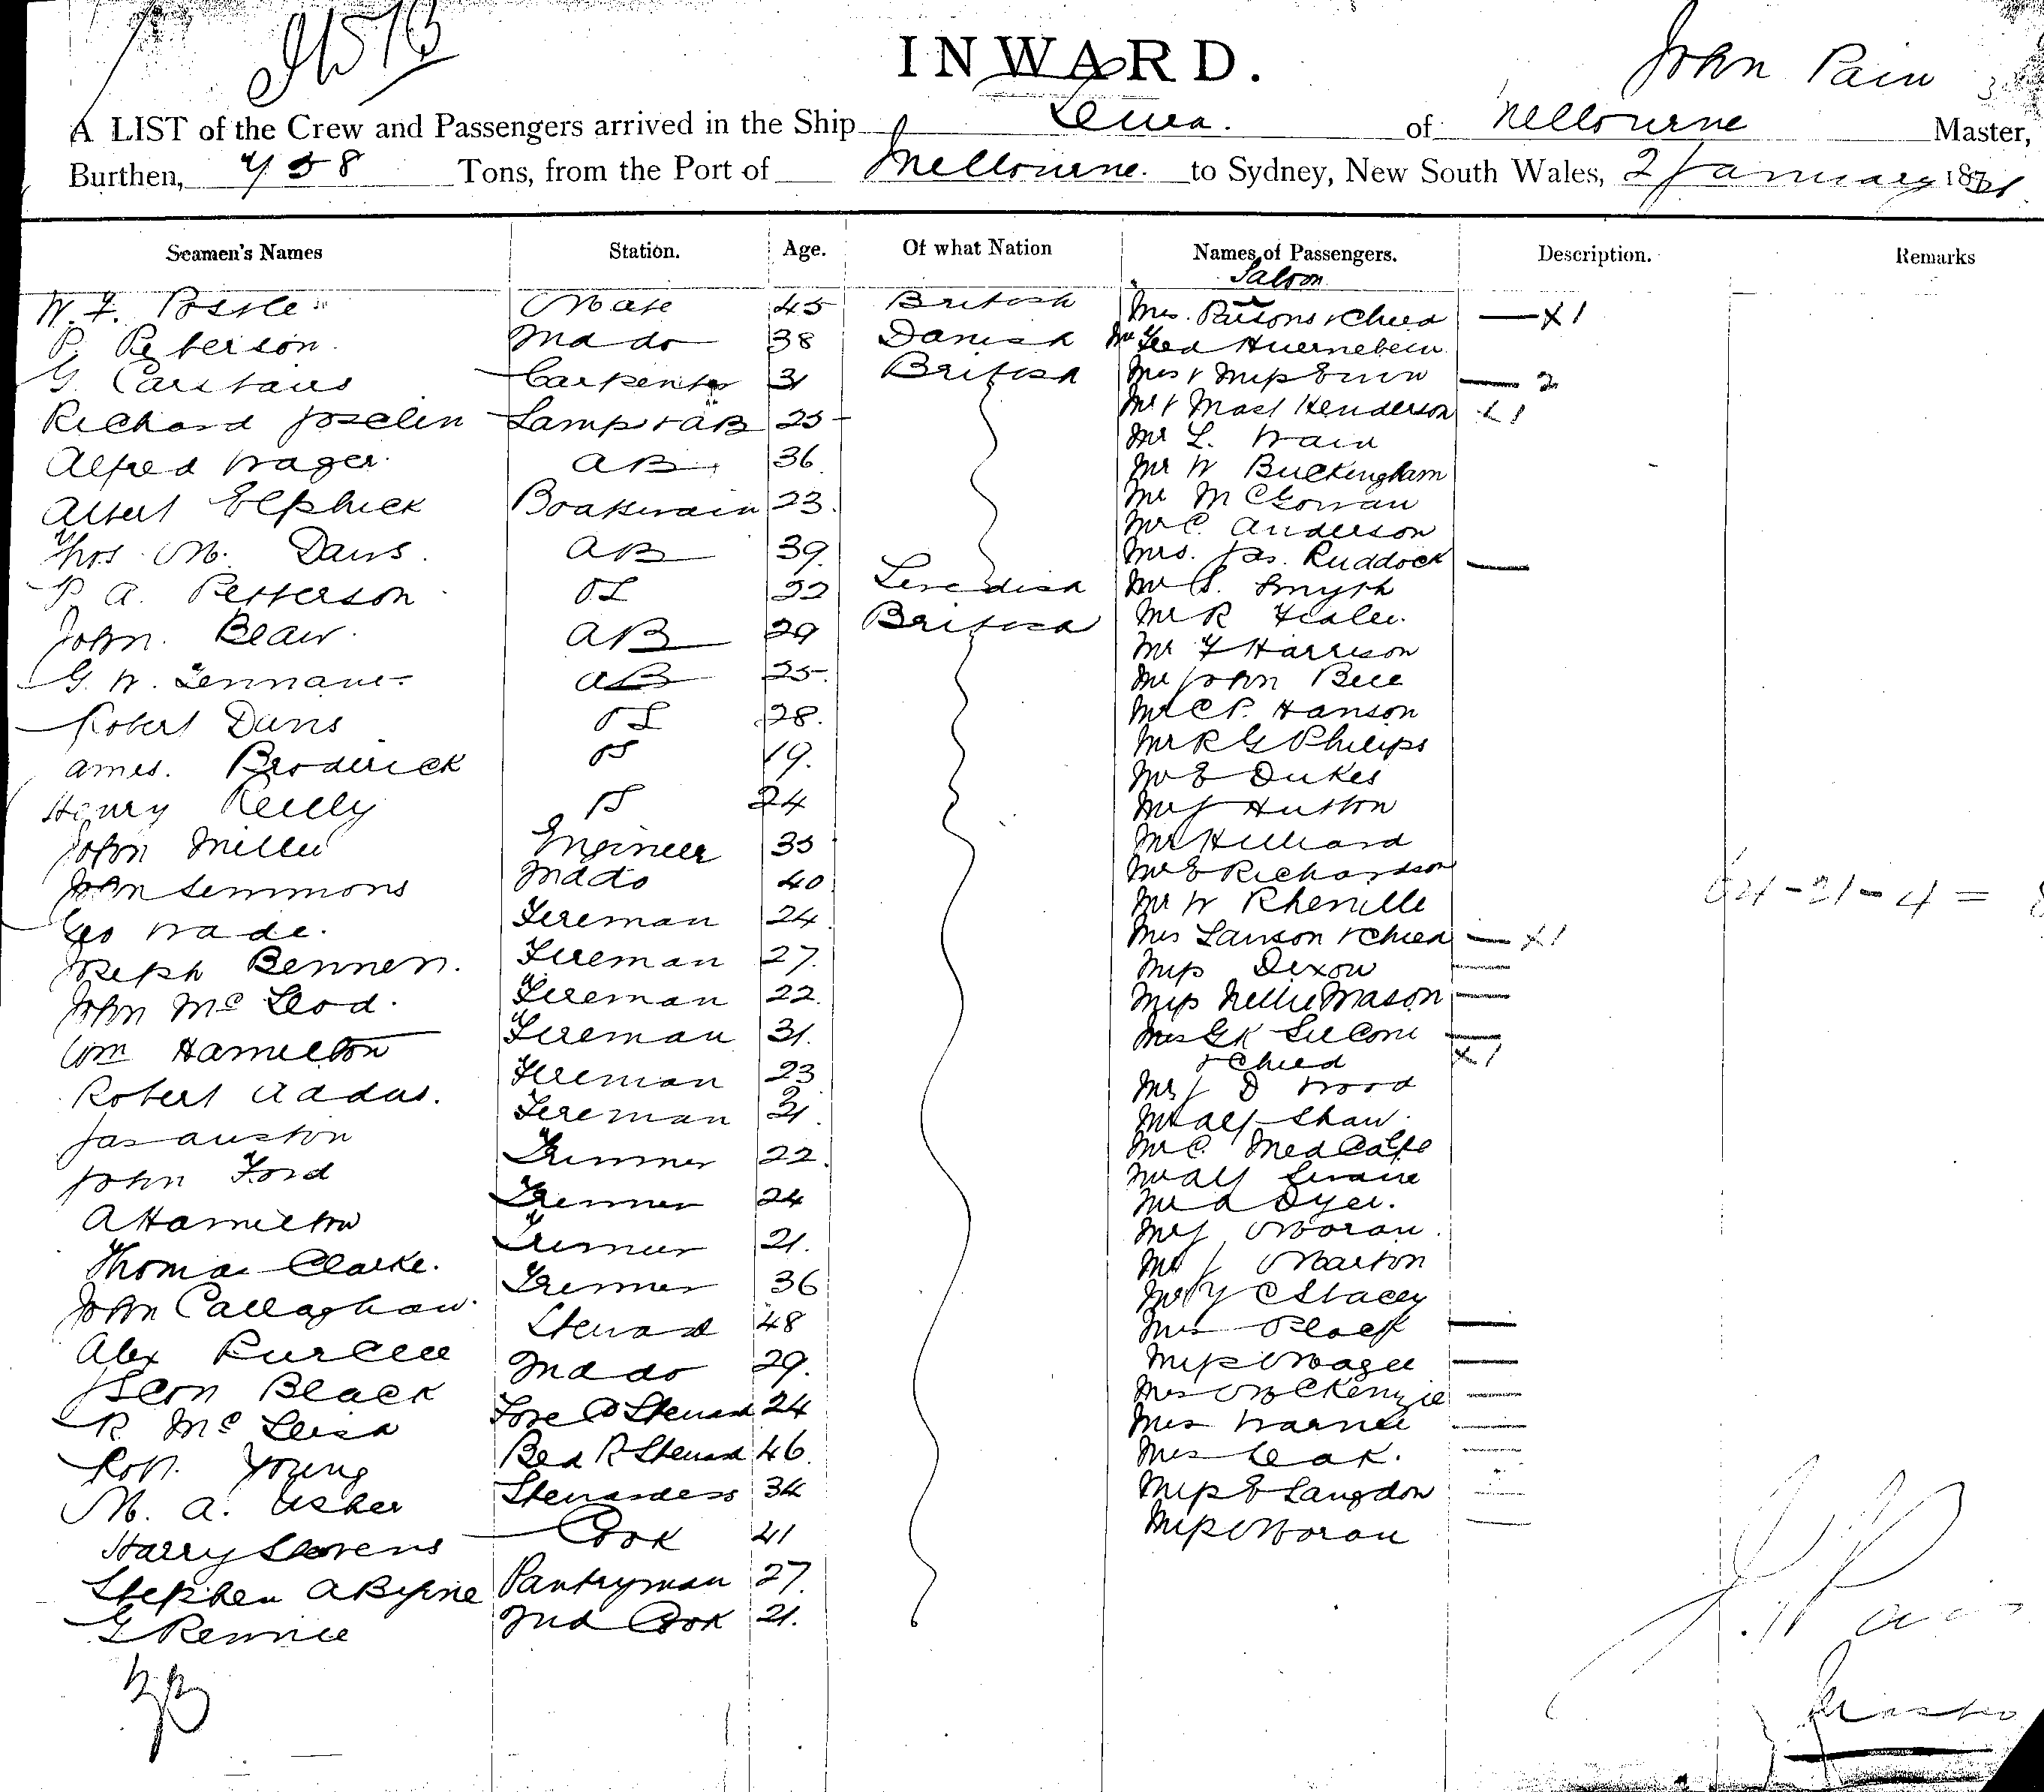 INWARD.
John Pain
A LIST of the Crew and Passengers arrived in the Ship of Melbourne Master,
Burthen, 758 Tons, from the Port of Melbourne. to Sydney, New South Wales, 2 January 18
Seamen's Names Station. Age. Of what Nation Names of Passengers. Description. Remarks
Saloon
W. F. Mate 45 British Mrs. Parsons & Child — X 1
P. Peterson. 2nd do 38 Danish Mr Fred
G. Carstairs Carpenter 31 British Mrs & Miss — 2
Richard Joselin Lamps & AB 25 Mr & Mast Henderson X 1
Alfred Wager. AB 36 Mr L. Wain
Albert Elphick Boatswain 23. Mr W Buckingham
Thos. M. Davis. AB 39. Mr McGowan
P. A. Petterson OS 22 Swedish Mr C. Anderson
John. Blair. AB 29 British Mrs. Jas. Ruddock —
G. W. Tennant AB 25. Mr S. Smyth
Robert Davis OS 28. Mr R
James. Broderick OS 19. Mr F Harrison
Henry Reilly OS 24 Mr John Bell
John Miller Engineer 35 Mr C P. Hanson
John Semmons 2nd do 40 Mr R G Philips
Geo Wade. Fireman 24 Mr E Dukes
Joseph Bennett. Fireman 27. Mr J Hutton
John McLeod. Fireman 22. Mr Hilliard
Wm Hamilton Fireman 31. Mr E Richardson
Robert Addas. Fireman 23 Mr W
Jas Austin Fireman 31. Mrs Lawson & Child — X 1
John Ford Trimmer 22. Miss Dixon —
A Hamilton Trimmer 24 Miss Nellie Mason —
Thomas Clarke. Trimmer 21. Mrs G K —
& Child X 1
John Callaghan. Trimmer 36 Mr J D Wood
Alex Purcell Steward 48 Mr Alf Shaw.
Black 2nd do 29. Mr C. Medcalfe
R McLeish Fore C Steward 24 Mr Alf Swain
Robt. Young Bed R Steward 46. Mr A Dyer.
M. A. Usher Stewardess 34 Mr J Moran.
Harry Stevens Cook 41 Mr J Marton
Stephen A Byrne Pantryman 27. Mr C Stacey
G Rennie 2nd Cook 21. Mrs —
Miss Magee —
Mrs McKenzie —
Mrs Warner —
Mrs Leak. —
Miss E Langdon —
Miss Moran —
64-21-4 =
J. Pain
Master